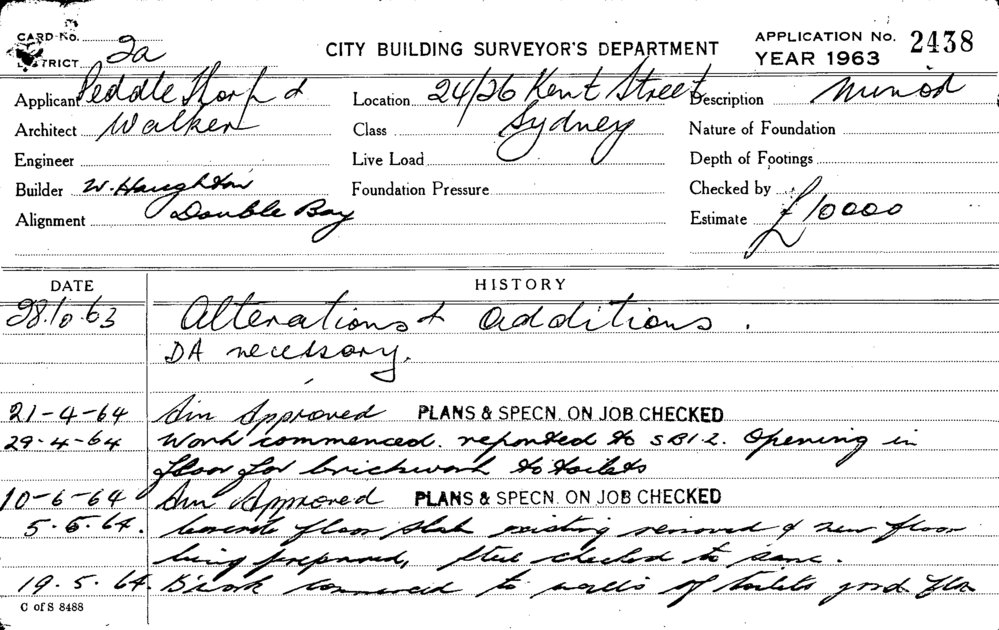 CARD No.
DISTRICT 2a
CITY BUILDING SURVEYOR'S DEPARTMENT
APPLICATION No. 2438
YEAR 1963
Applicant Peddle Thorp &
Location 24/26 Kent Street
Description
Architect Walker
Class Sydney
Nature of Foundation
Engineer
Live Load
Depth of Footings
Builder W. Haughton
Foundation Pressure
Checked by
Alignment Double Bay
Estimate £10000
DATE
HISTORY
28.10.63 Alterations & additions.
DA necessary.
21-4-64 Approved PLANS & SPECN. ON JOB CHECKED
29-4-64 Work commenced. reported to SBI 2. Opening in
floor for brickwork to toilets
10-6-64 Approved PLANS & SPECN. ON JOB CHECKED
5.5.64. Concrete floor slab existing removed & new floor
being prepared, steel checked to same.
19.5.64. B'work commenced to walls of toilets
C of S 8488